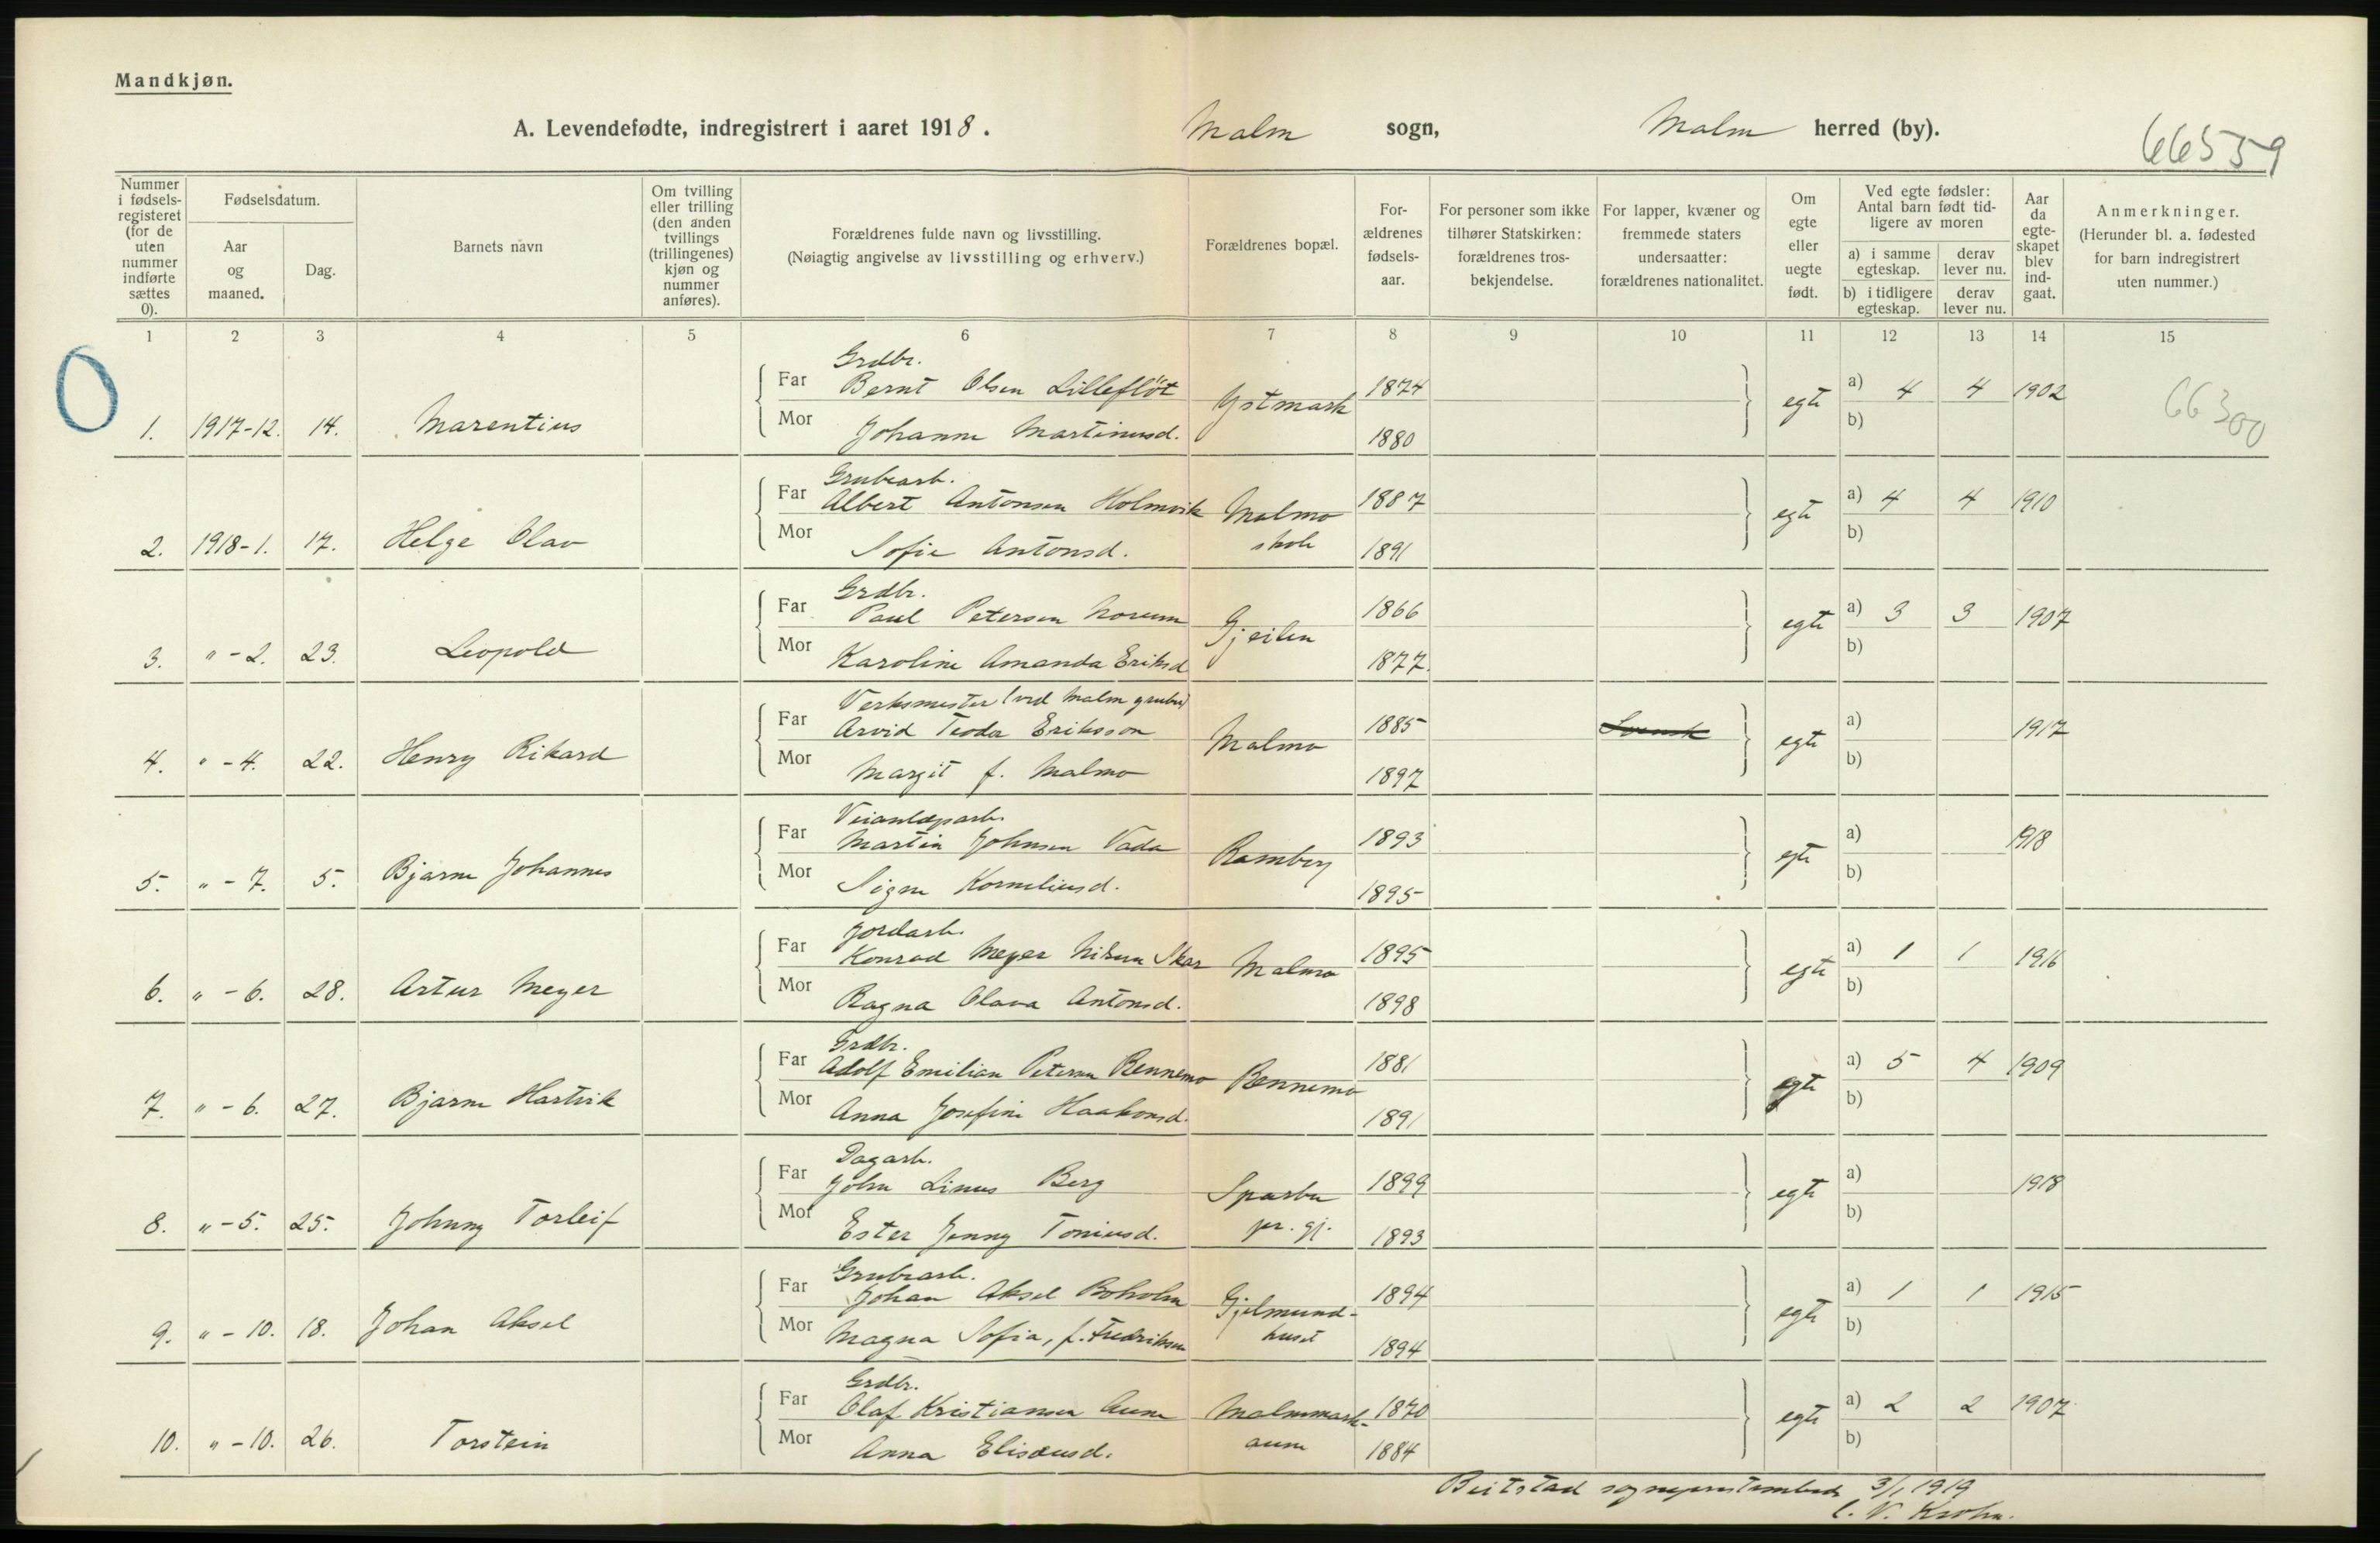 Mandkjøn.
A. Levendefødte, indregistrert i aaret 1918. Malm sogn, Malm herred (by).
66559
Nummer i fødsels-registeret (for de uten nummer indførte sættes 0).
Fødselsdatum.
Aar og maaned.
Dag.
Barnets navn
Om tvilling eller trilling (den anden tvillings (trillingenes) kjøn og nummer anføres).
Forældrenes fulde navn og livsstilling.
(Nøiagtig angivelse av livsstilling og erhverv.)
Forældrenes bopæl.
For-ældrenes fødsels-aar.
For personer som ikke tilhører Statskirken: forældrenes tros-bekjendelse.
For lapper, kvæner og fremmede staters undersaatter: forældrenes nationalitet.
Om egte eller uegte født.
Ved egte fødsler: Antal barn født tid-ligere av moren
a) i samme egteskap.
derav lever nu.
b) i tidligere egteskap.
derav lever nu.
Aar da egte-skapet blev ind-gaat.
Anmerkninger.
(Herunder bl. a. fødested for barn indregistrert uten nummer.)
1 2 3 4 5 6 7 8 9 10 11 12 13 14 15
0
Grdbr.
Far Bernt Olsen Lilleflöt Ystmark 1874 egte a) 4 4 1902
66300
1. 1917-12. 14. Marentius Mor Johanne Martinusd. 1880 b)
Grubearb.
Far Albert Antonsen Holmvik Malmo skole 1887 egte a) 4 4 1910
2. 1918-1. 17. Helge Olav Mor Sofie Antonsd. 1891 b)
Grdbr.
Far Paul Petersen Norum Gjeilen 1866 egte a) 3 3 1907
3. " - 2. 23. Leopold Mor Karoline Amanda Eriksd 1877. b)
Verksmester (ved Malm gruber)
Far Arvid Teodor Eriksson Malmo 1885 Svensk egte a) 1917
4. " - 4. 22. Henry Rikard Mor Margit f. Malmo 1897 b)
Veianlægsarb.
Far Martin Johnsen Vada Ramberg 1893 egte a) 1918
5. " - 7. 5. Bjarne Johannes Mor Signe Korneliusd. 1895 b)
Jordarb.
Far Konrad Meyer Nilsen Skar Malmo 1895 egte a) 1 1 1916
6. " - 6. 28. Artur Meyer Mor Ragna Olava Antonsd. 1898 b)
Grdbr.
Far Adolf Emilian Petersen Rennemo Rennemo 1881 egte a) 5 4 1909
7. " - 6. 27. Bjarne Hartvik Mor Anna Josefine Haakonsd. 1891 b)
Dagarb.
Far John Linus Berg Sparbu pr. gj. 1899 egte a) 1918
8. " - 5. 25. Johnny Torleif Mor Ester Jenny Toniusd. 1893 b)
Grubearb.
Far Johan Aksel Boholm Gjelmund-huset 1894 egte a) 1 1 1915
9. " - 10. 18. Johan Aksel Mor Magna Sofia, f. Fredriksen 1894 b)
Grdbr.
Far Olaf Kristiansen Aune Malmmark-aune 1870 egte a) 2 2 1907
10. " - 10. 26. Torstein Mor Anna Elisæusd. 1884 b)
Beitstad sogneprestembede 3/1 1919
C. V. Krohn.